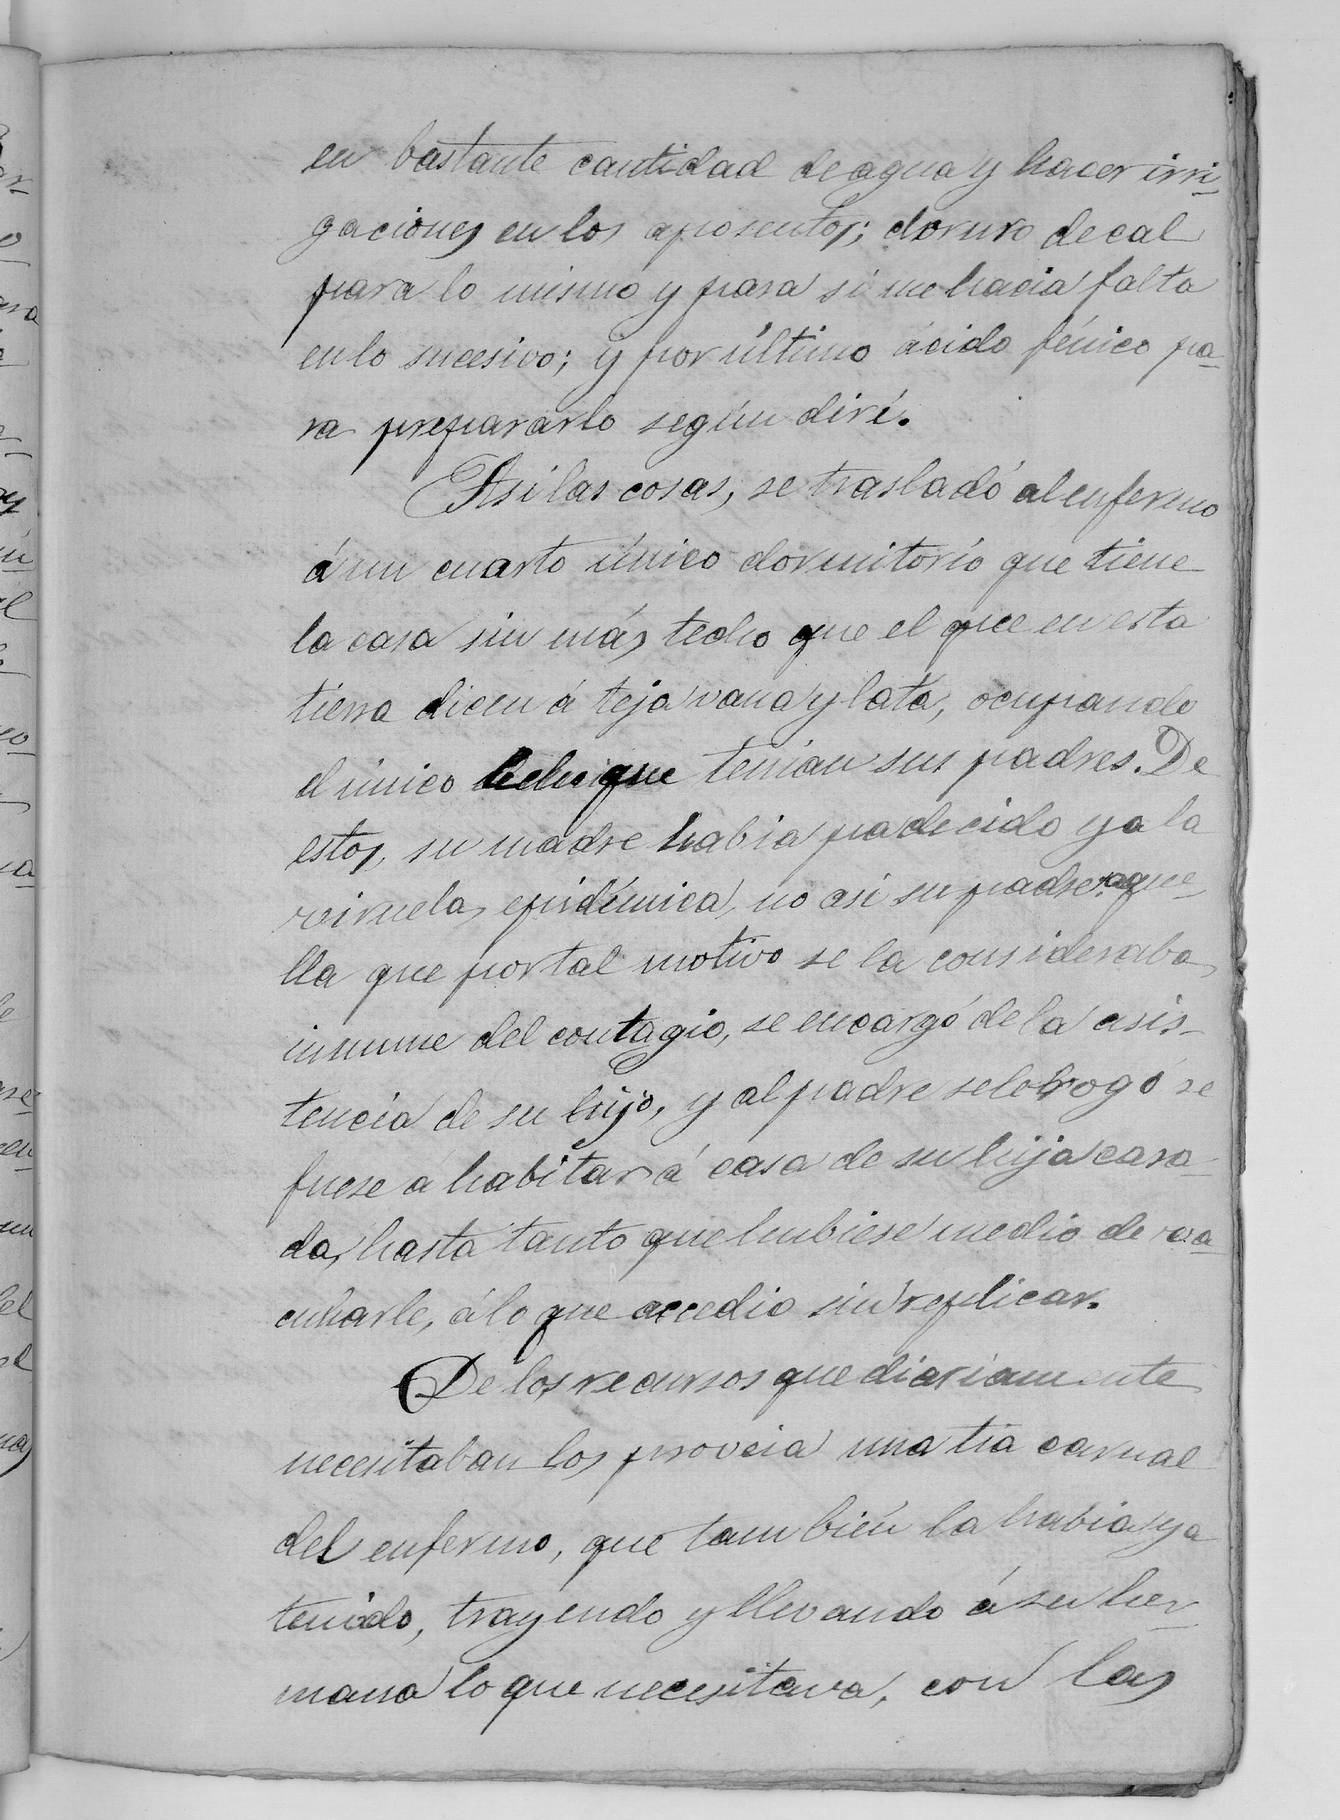 en bastante cantidad de agua y hacer irri-
gaciones en los aposentos; cloruro de cal
para lo mismo y para si me hacia falta
en lo sucesivo; y por último ácido fénico pa-
ra prepararlo según diré.
Asi las cosas, se trasladó al enfermo
á un cuarto único dormitorio que tiene
la casa sin más techo que el que en esta
tierra dicen á teja vana y lata, ocupando
el único lecho que tenian sus padres. De
estos, su madre habia padecido ya la
viruela epidémica, no asi su padre: aque-
lla que por tal motivo se la consideraba
inmune del contagio, se encargó de la asis-
tencia de su hijo, y al padre se le rogó se
fuese a habitar á casa de su hija casa-
da, hasta tanto que hubiese medio de va-
cunarle, á lo que accedio sin replicar.
De los recursos que diariamente
necesitaban los proveia una tia carnal
del enfermo, que tambien la habia ya
tenido, trayendo y llevando á su her-
mana lo que necesitava, con las